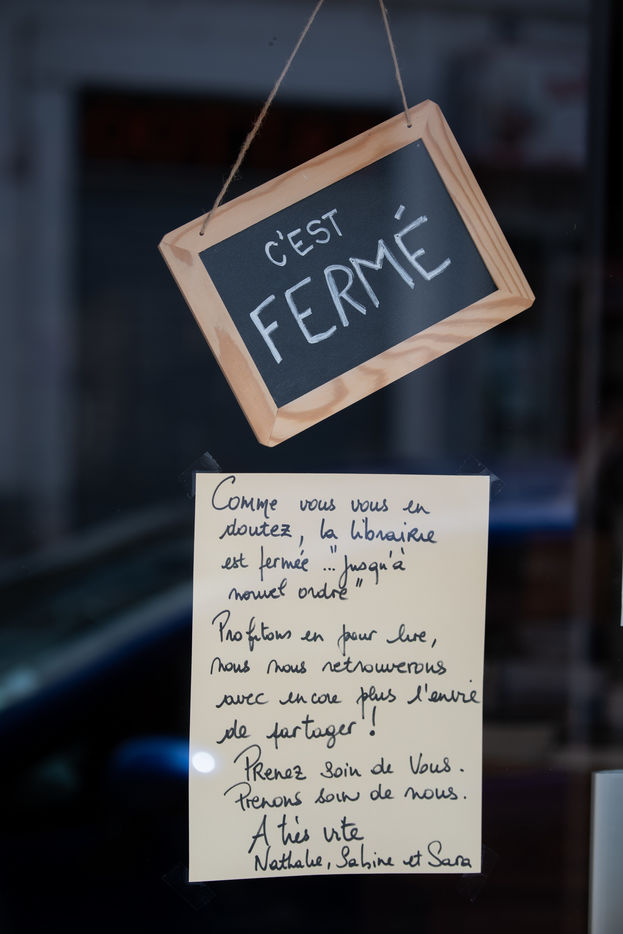 C'EST
FERMÉ
Comme vous vous en
doutez, la librairie
est fermée ... "Jusqu'à
nouvel ordre"
Profitons en pour lire,
nous nous retrouverons
avec encore plus l'envie
de partager !
Prenez soin de Vous.
Prenons soin de nous.
A très vite
Nathalie, Sabine et Sara